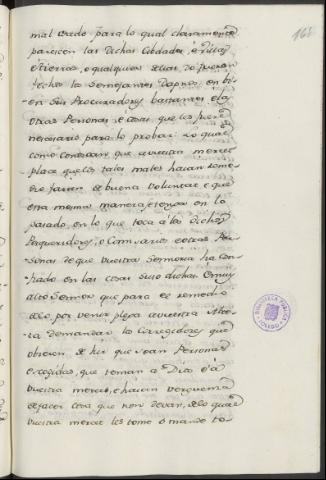 165
mal usado para lo qual claramente
parescen las dichas Cibdades, e villas
e tierras, o qualquiera dellas do fueron
fechos las semejantes Daptios, en bi
en sus Procuradores bastantes e la
otras Personas, e cosas que les fueren
necesarios para lo probar: lo qual
como conoscan que a vuestra merced
place que los tales males hayan reme
dio faran de buena voluntad e que
esta mesma manera e tenga en lo
pasado, en lo que toca a los dichos
Requeridores, o Comisarios e otras Per
sonas de que vuestra Señoria ha con
fiado en las cosas suso dichas. E muy
alto Señor que para el remedio
dello, por venir plega a vuestra Alte
za demandar los Corregidores que
obieren de ser que sean Personas
escogidas, que teman a Dios é á
vuestra merced, e hayan verguenza
de facer cosa que non devan, de lo qual
vuestra merced les tome o mande to-
BIBLIOTECA PUBLICA
TOLEDO